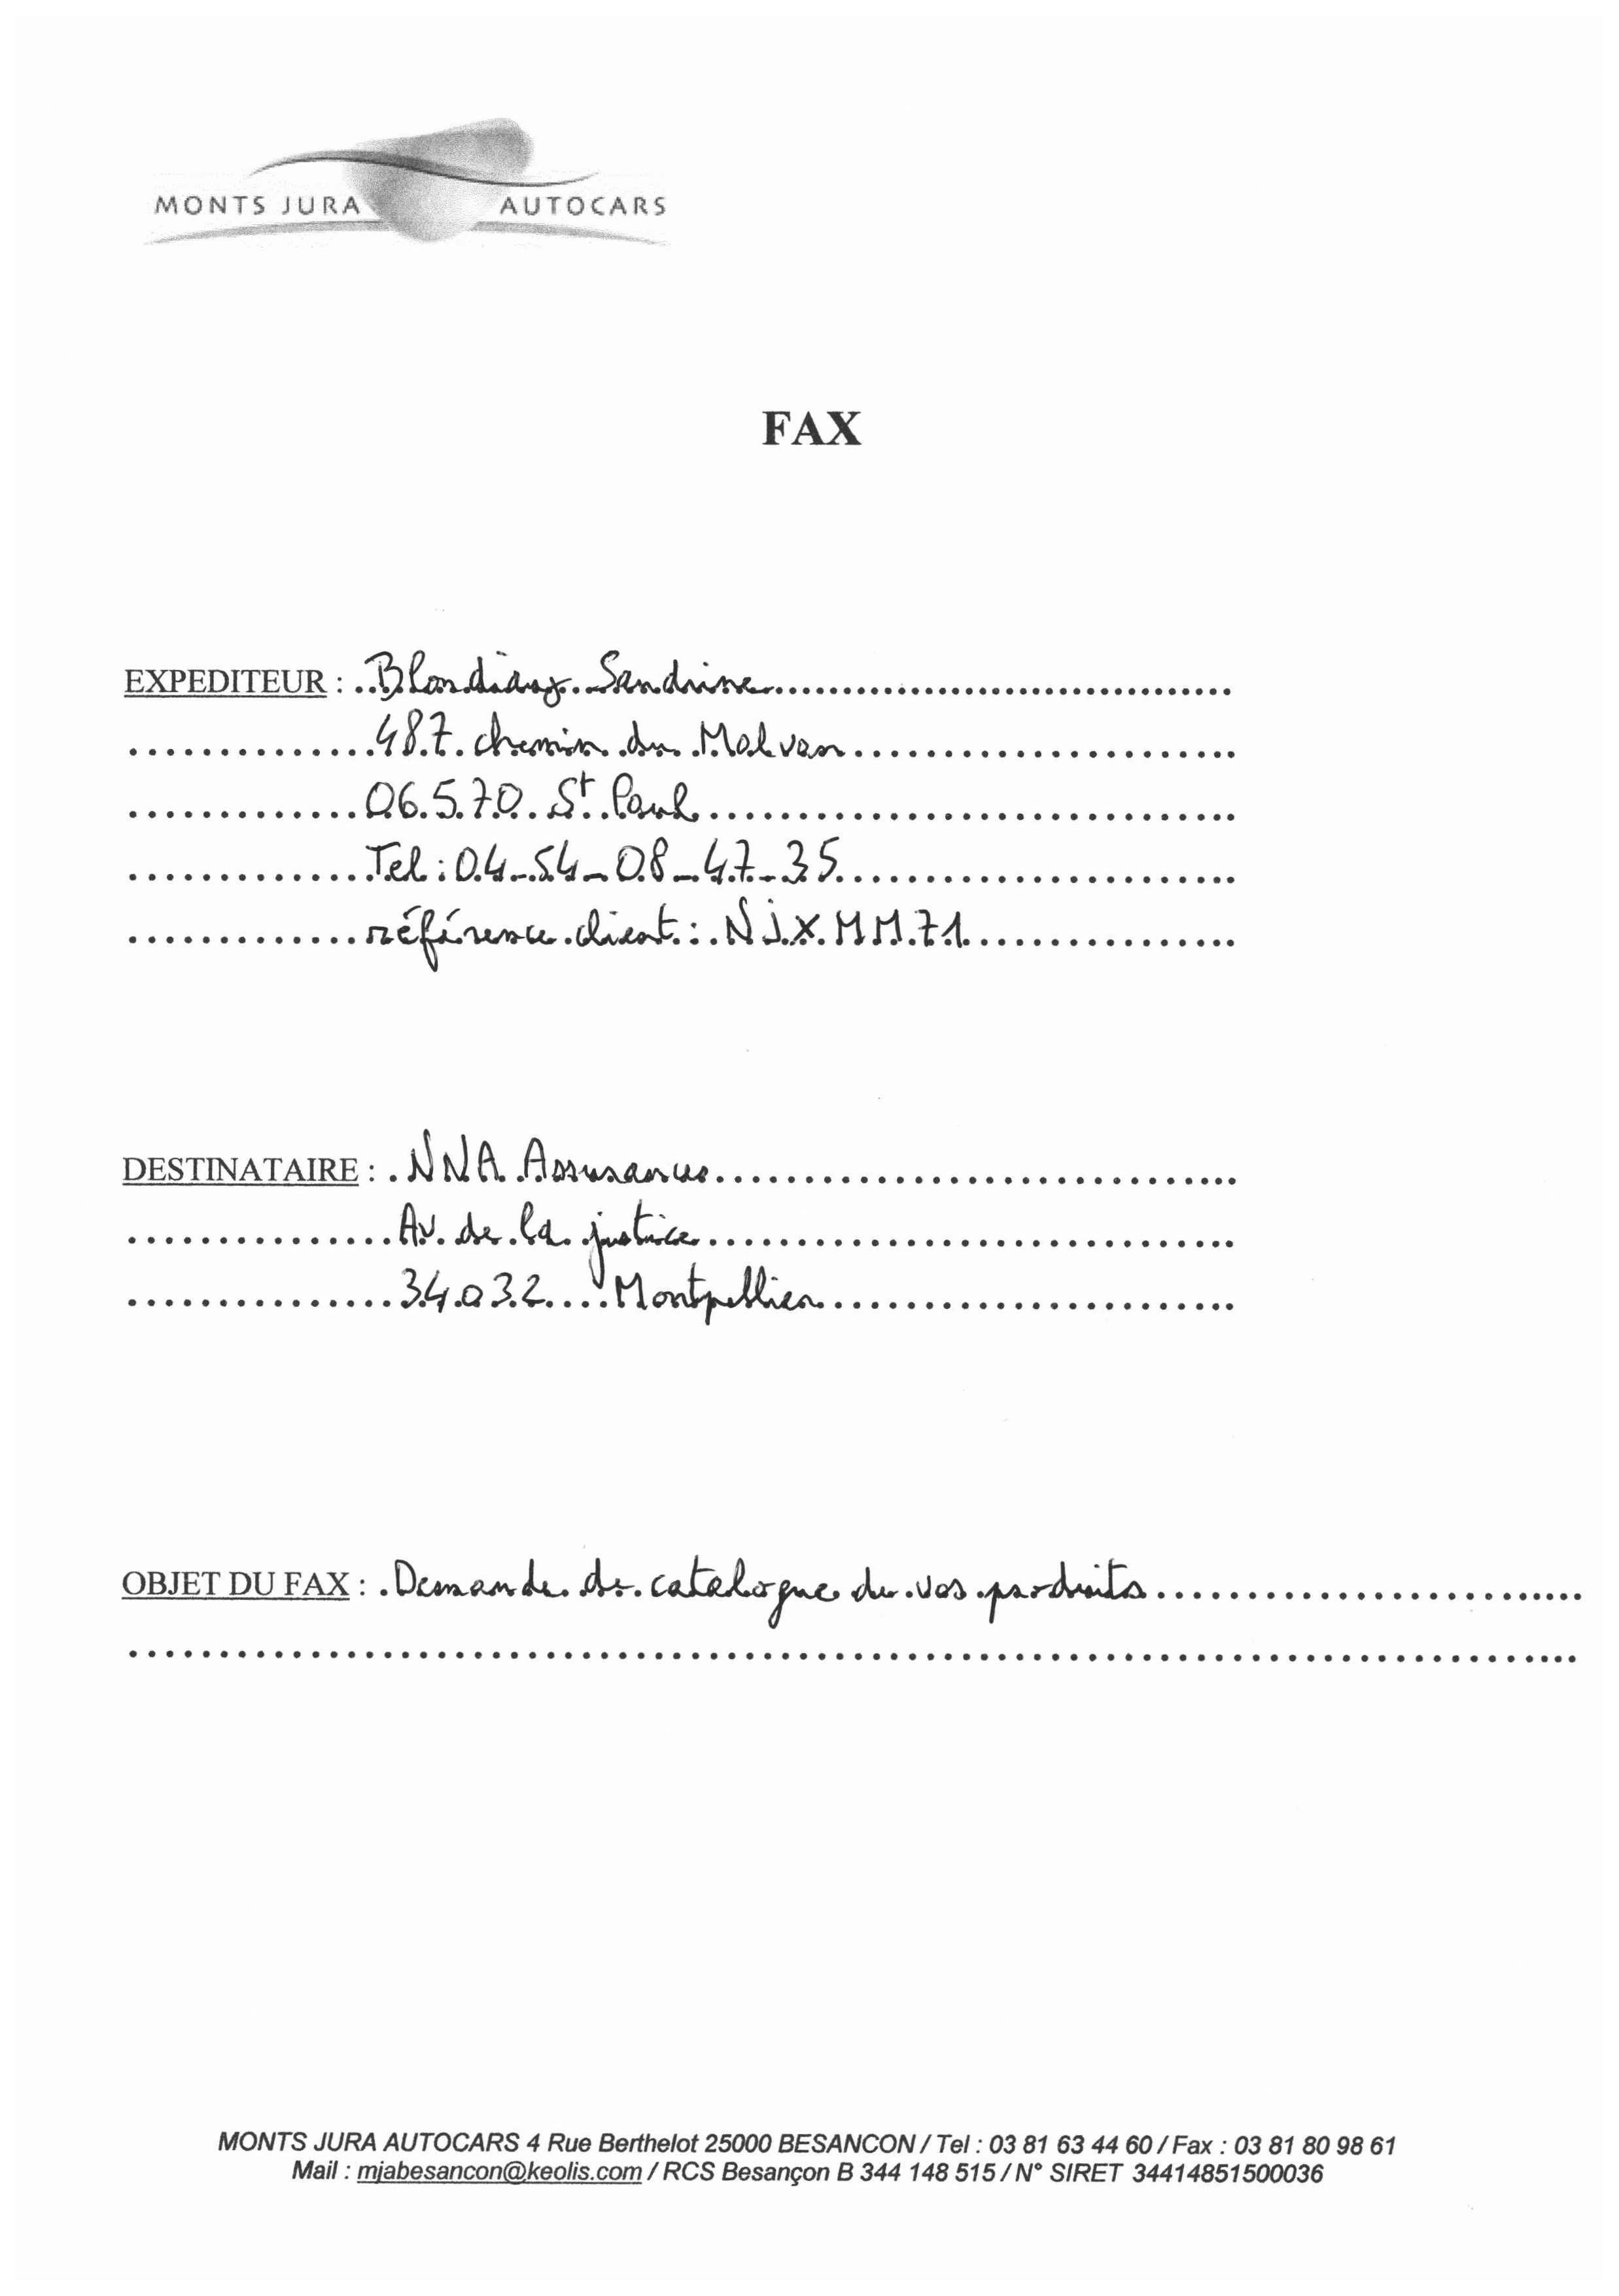 MONTS JURA AUTOCARS
FAX
EXPEDITEUR : Blondiaux Sandrine
487 chemin du Malvan
06570 St Paul
Tel : 04-54-08-47-35
référence client : NJXMM71
DESTINATAIRE : NNA Assurances
Av. de la justice
34032 Montpellier
OBJET DU FAX : Demande de catalogue de vos produits
MONTS JURA AUTOCARS 4 Rue Berthelot 25000 BESANCON / Tel : 03 81 63 44 60 / Fax : 03 81 80 98 61
Mail : mjabesancon@keolis.com / RCS Besançon B 344 148 515 / N° SIRET 34414851500036